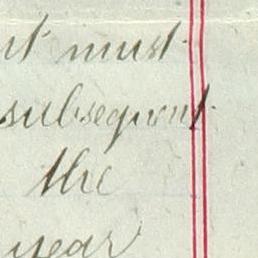 must
subsequent
the
year